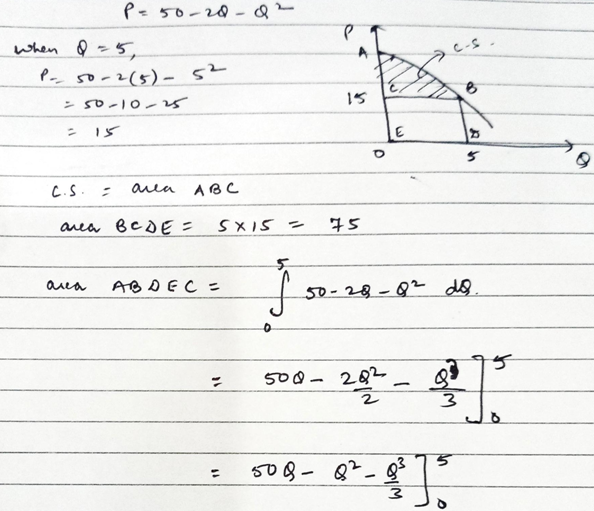 P = 50 - 2Q - Q²
when Q = 5,
P = 50 - 2(5) - 5²
= 50 - 10 - 25
= 15
P
A
C.S.
C
B
15
E
D
0
5
Q
C.S. = area ABC
area BCDE = 5 × 15 = 75
area ABDEC = ∫₀⁵ 50 - 2Q - Q² dQ.
= 50Q - 2Q²/2 - Q³/3 ]₀⁵
= 50Q - Q² - Q³/3 ]₀⁵